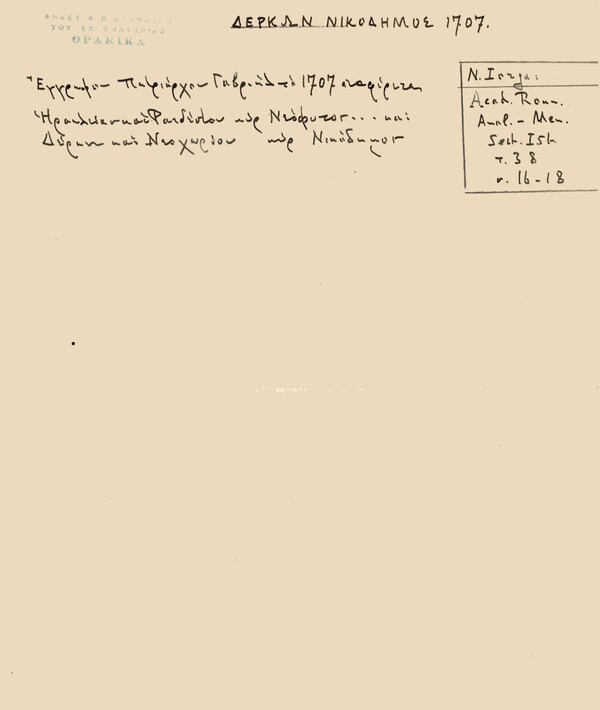 ΑΝΑΣΤ. Κ. Π. ΣΤΑΜΟΥΛΗ
ΤΟΥ ΕΚ ΣΗΛΥΒΡΙΑΣ
ΘΡΑΚΙΚΑ
ΔΕΡΚΩΝ ΝΙΚΟΔΗΜΟΣ 1707.
Ἔγγραφον Πατριάρχου Γαβριὴλ τὸ 1707 αναφέρεται
Ἡρακλείας καὶ Ραιδεστοῦ κὺρ Νεόφυτος... καὶ
Δέρκων καὶ Νεοχωρίου κὺρ Νικόδημος
N. Iorga:
Acad. Rom.
Anal. - Mem.
Sect. Ist.
τ. 38
ν. 16-18